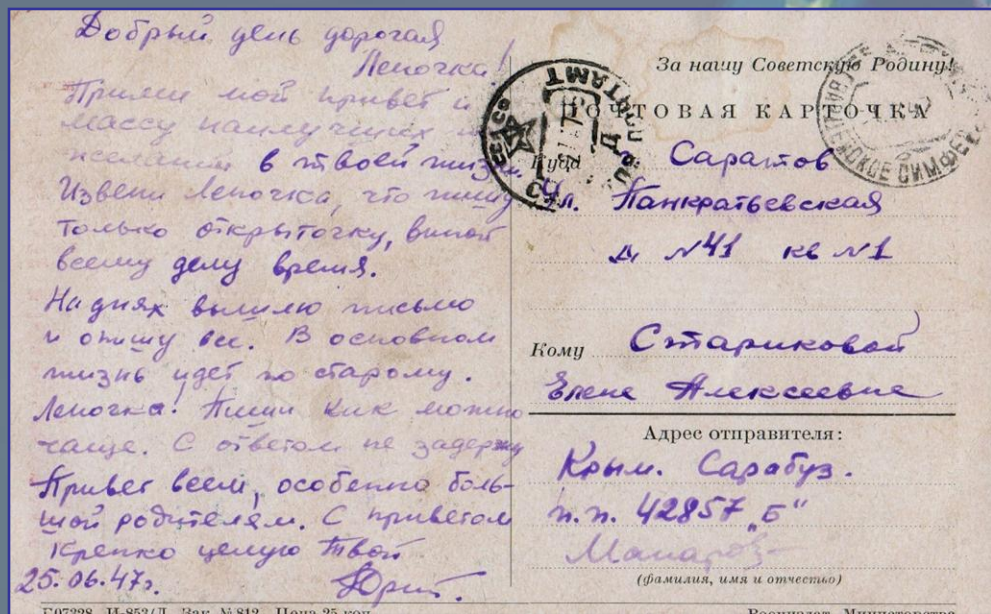 Добрый день дорогая
Леночка!
Прими мой привет и
массу наилучших
желаний в твоей жизни.
Извени Леночка, что пишу
только открыточку, виной
всему делу время.
На днях вышлю письмо
и опишу все. В основном
жизнь идет по старому.
Леночка! Пиши как можно
чаще. С ответом не задержу
Привет всем, особенно боль-
шой родителям. С приветом
крепко целую Твой
25.06.47г. Юрий.
За нашу Советскую Родину!
ПОЧТОВАЯ КАРТОЧКА
Куда Саратов
ул. Панкратьевская
д №41 кв №1
Кому Стариковой
Елене Алексеевне
Адрес отправителя:
Крым. Сарабуз.
п.п. 42857 „Б"
(фамилия, имя и отчество)
Г07228 И-853/Л. Зак. №812. Цена 25 коп.
Воениздат Министерства